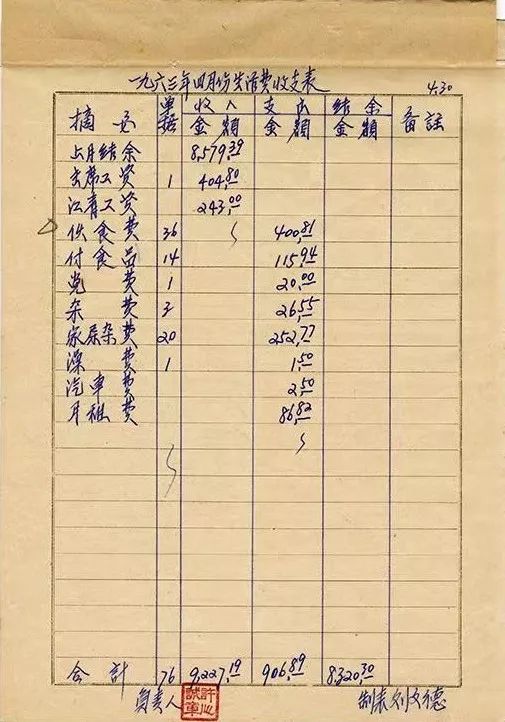 一九六三年四月份生活费收支表 4.30
摘要 单据 收入 支出 结余 备註
金額 金額 金額
上月结余 8,579.39
主席工资 1 404.80
江青工资 243.00
伙食费 36 400.81
付食品 14 115.94
党费 1 20.00
杂费 3 26.55
家杂费 20 252.77
澡费 1 1.50
汽車费 2.50
月租费 86.82
合計 76 9,227.19 906.89 8320.30
負责人 制表刘文德